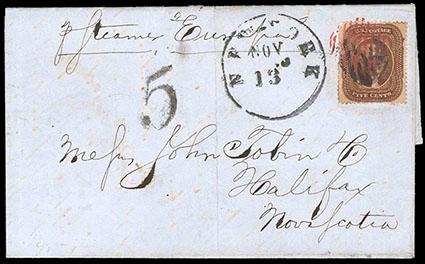 p Steamer Europa
NEW YORK
NOV
13
5
U.S. POSTAGE
FIVE CENTS
Messrs John Tobin & Co
Halifax
Nova Scotia